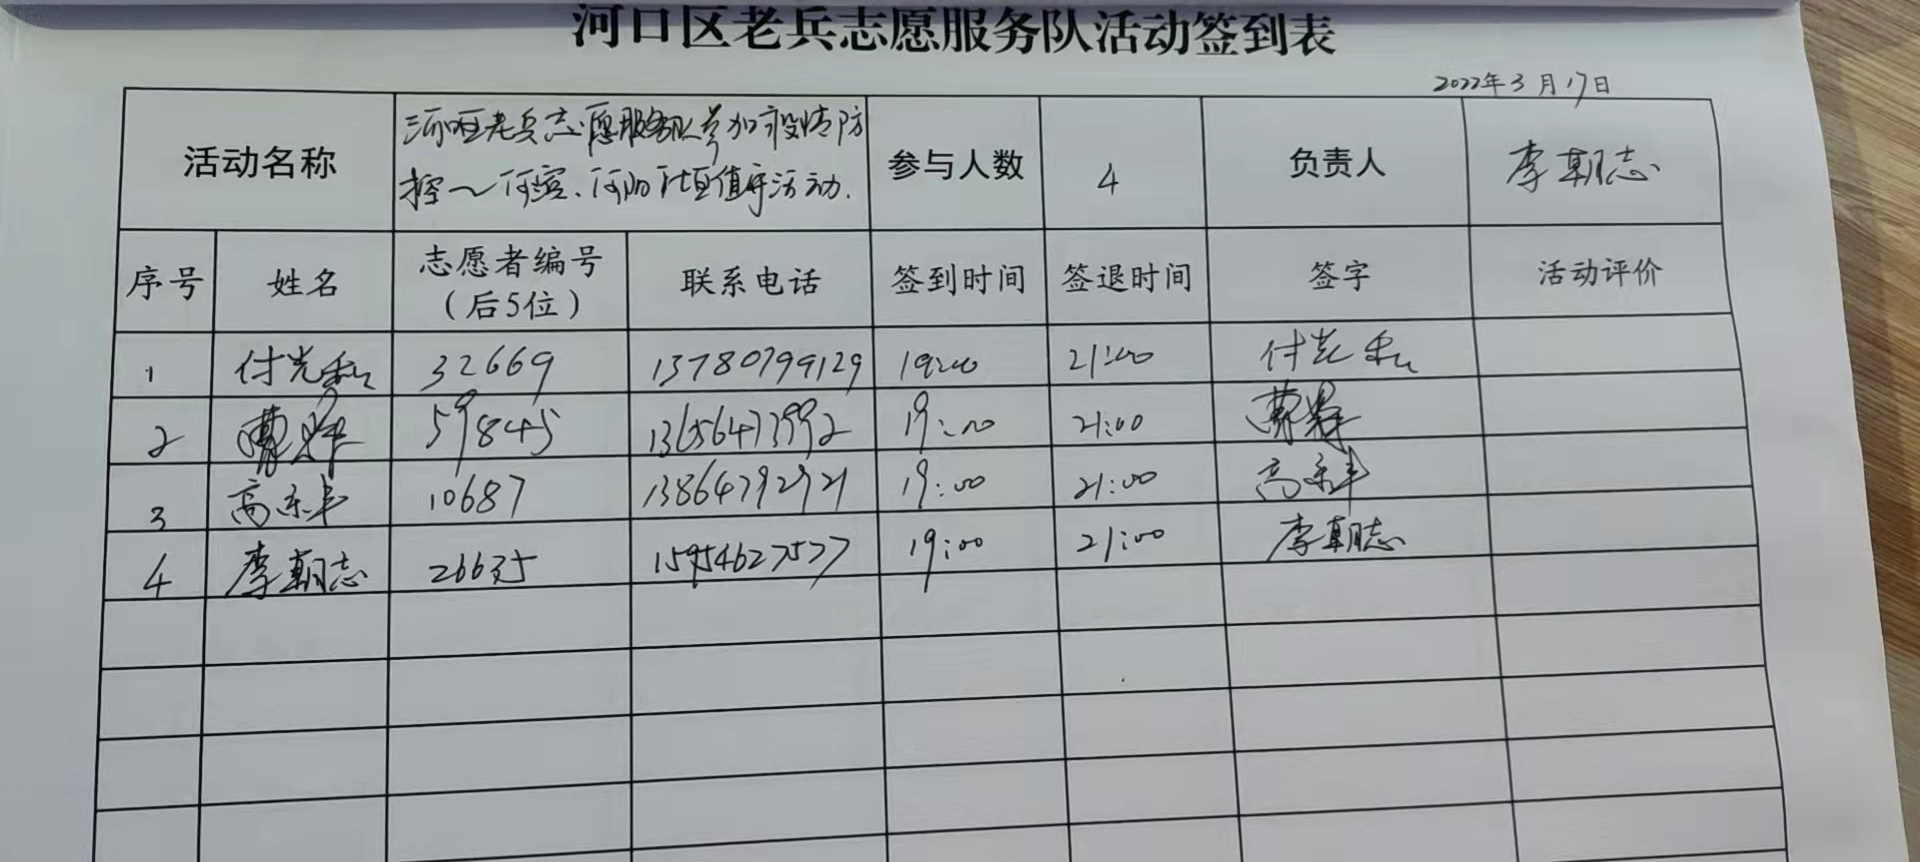 河口区老兵志愿服务队活动签到表
2022年3月17日
活动名称 河口区老兵志愿服务队参加疫情防 参与人数 4 负责人 李朝志
控～河滨、河阳社区值守活动.
序号 姓名 志愿者编号 联系电话 签到时间 签退时间 签字 活动评价
（后5位）
1 付光私 32669 13780799129 19:00 21:00 付光私
2 曹 59845 13656473992 19:00 21:00 曹
3 高东半 10687 13864792921 19:00 21:00 高东半
4 李朝志 26635 15954627577 19:00 21:00 李朝志